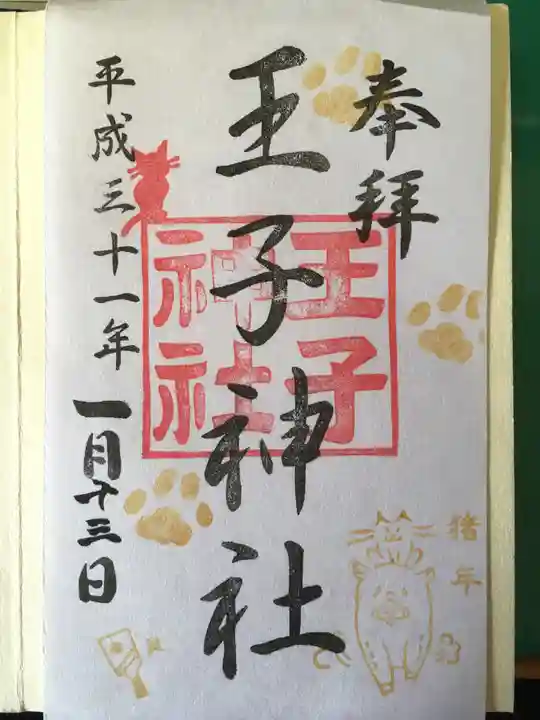 奉拝
王子神社
王子
神社
平成三十一年一月十三日
猪年